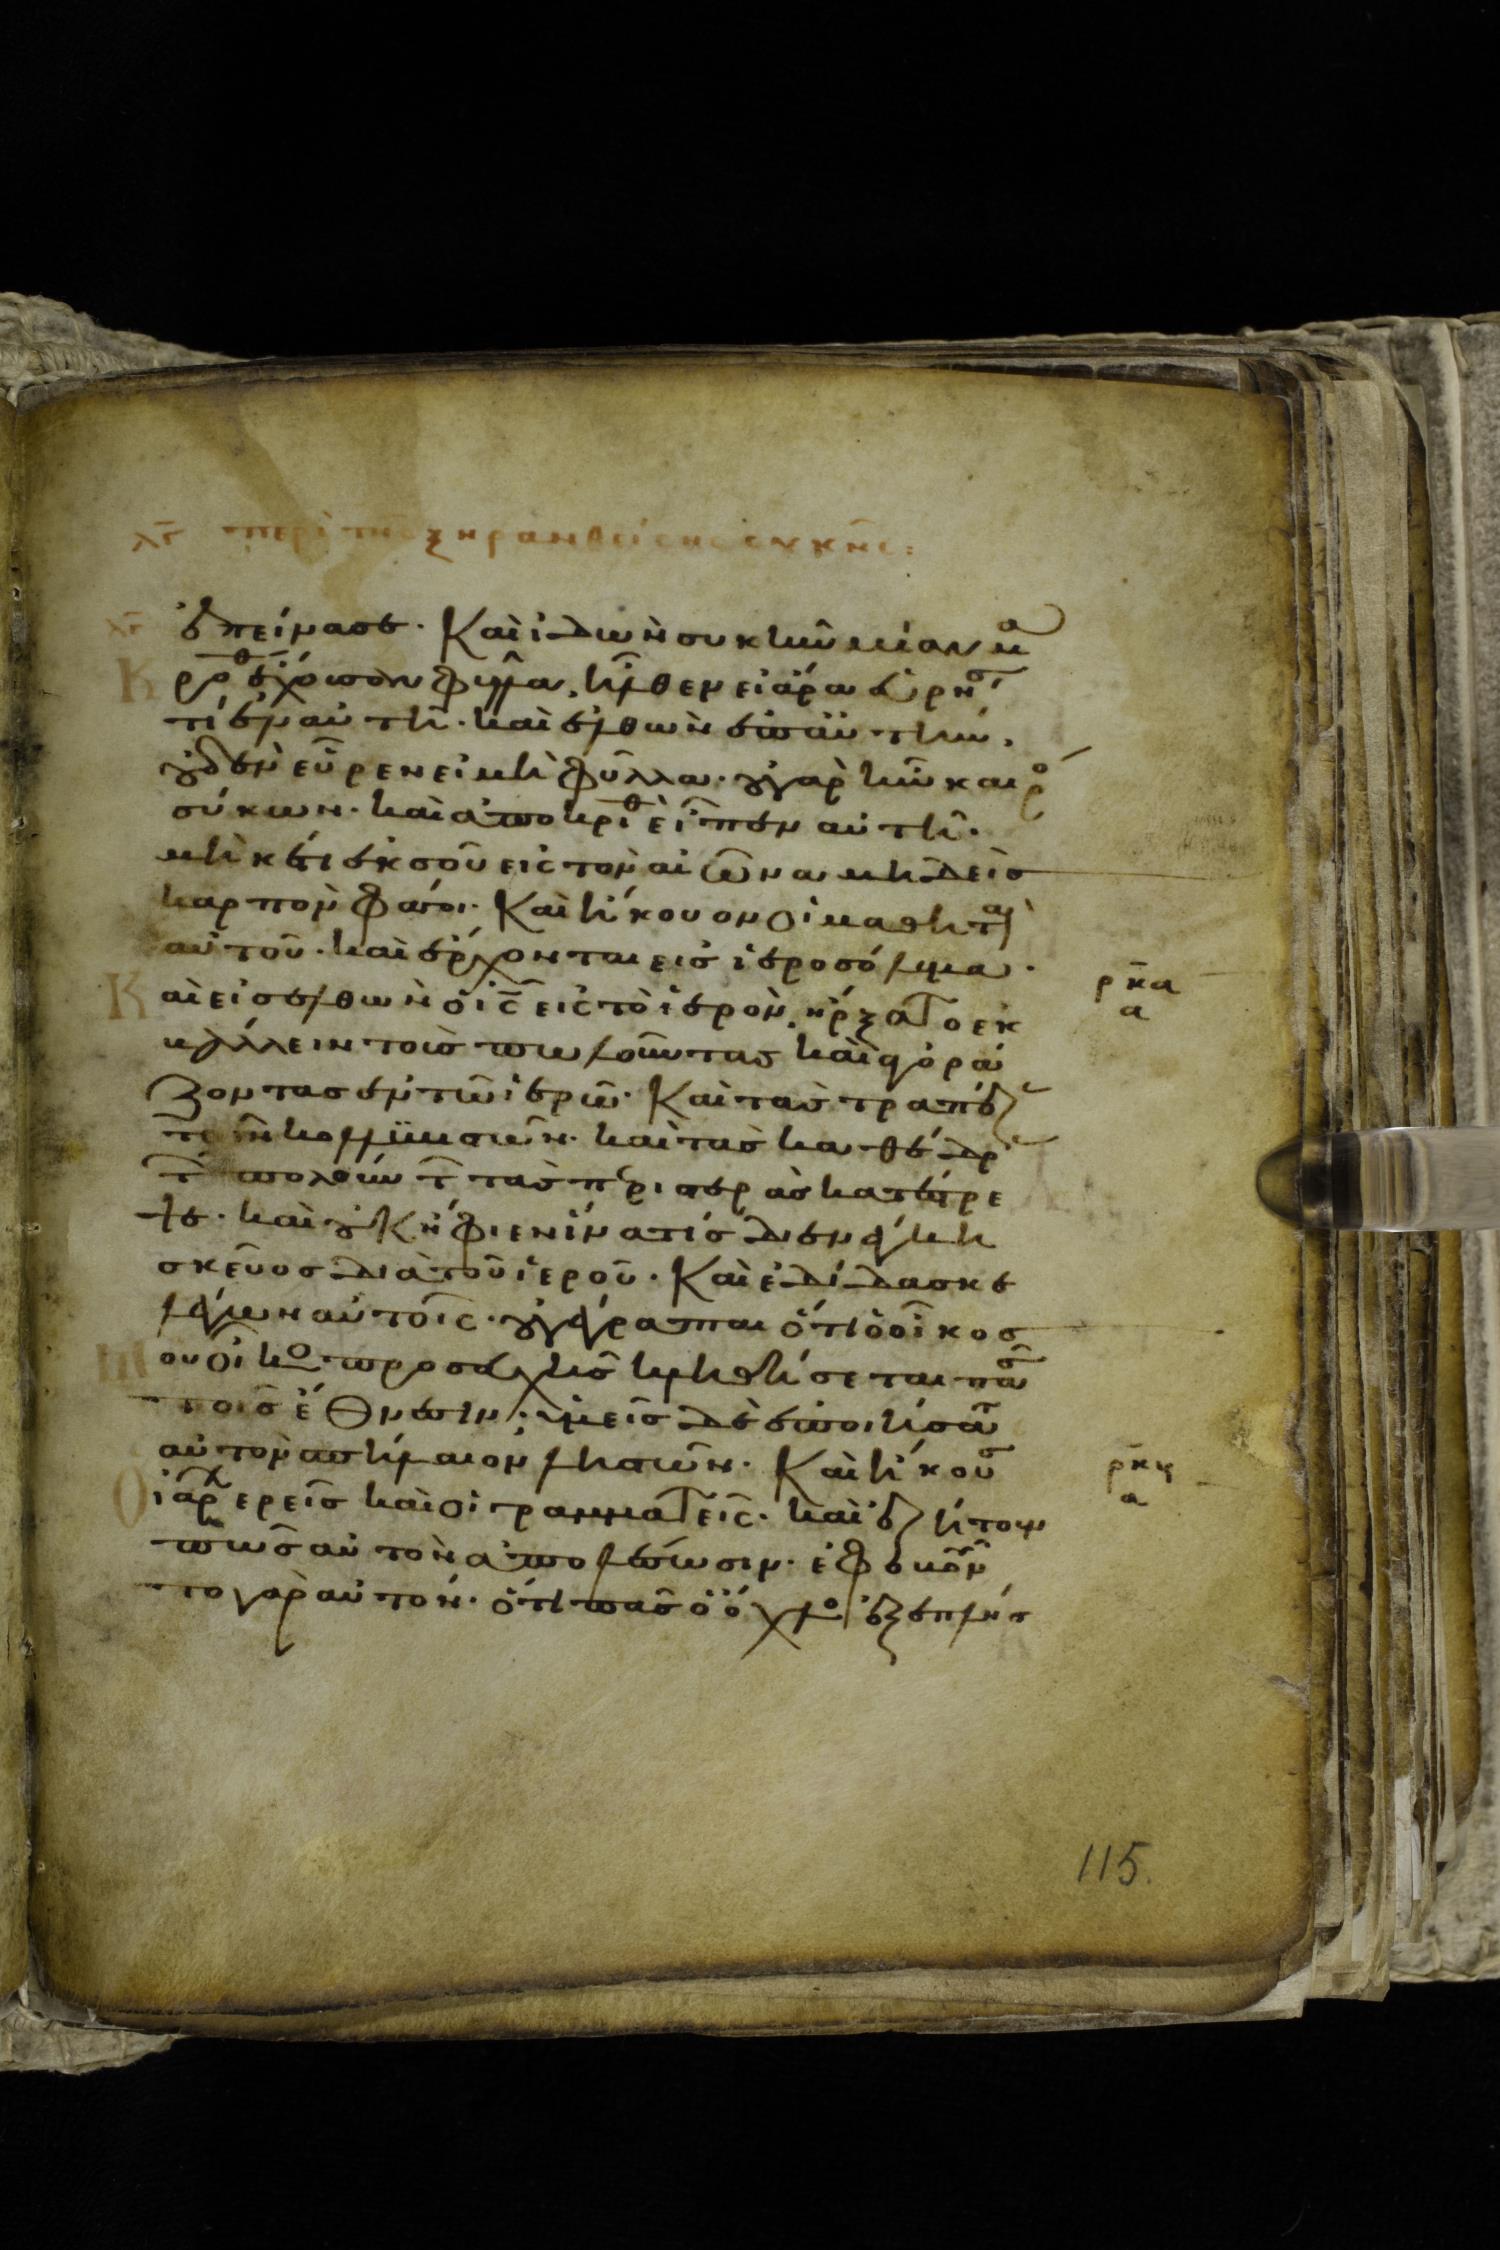 λγ περὶ τῆς ξηρανθείσης συκῆς:
ἐπείνασε. Καὶ ἰδὼν συκῆν μίαν μα
κρόθεν ἔχουσαν φύλλα, ἦλθεν εἰ ἄρα εὑρήσει
τι ἐν αὐτῇ. καὶ ἐλθὼν ἐπ αὐτὴν,
οὐδὲν εὗρεν εἰ μὴ φύλλα. οὐ γὰρ ἦν καιρὸς
σύκων. καὶ ἀποκριθεὶς εἶπεν αὐτῇ.
μηκέτι ἐκ σοῦ εἰς τὸν αἰῶνα μηδεὶς
καρπὸν φάγοι. Καὶ ἤκουον οἱ μαθηταὶ
αὐτοῦ. καὶ ἔρχονται εἰς ἱεροσόλυμα.
Καὶ εἰσελθὼν ὁ ις εἰς τὸ ἱερὸν, ἤρξατο ἐκ
βάλλειν τοὺς πωλοῦντας καὶ ἀγορά
ζοντας ἐν τῷ ἱερῷ. Καὶ τὰς τραπέζας
τῶν κολλυβιστῶν. καὶ τὰς καθέδρας
τῶν πωλούντων τὰς περιστερὰς κατέστρε
ψε. καὶ οὐκ ἤφιεν ἵνα τις διενέγκῃ
σκεῦος διὰ τοῦ ἱεροῦ. Καὶ ἐδίδασκε
λέγων αὐτοῖς. οὐ γέγραπται ὅτι ὁ οἶκός
μου οἶκος προσευχῆς κληθήσεται πᾶσι
τοῖς ἔθνεσιν; ὑμεῖς δὲ ἐποιήσατε
αὐτὸν σπήλαιον λῃστῶν. Καὶ ἤκουσαν
Οἱ ἀρχιερεῖς καὶ οἱ γραμματεῖς. καὶ ἐζήτουν
πῶς αὐτὸν ἀπολέσωσιν. ἐφοβοῦν
το γὰρ αὐτόν. ὅτι πᾶς ὁ ὄχλος ἐξεπλήσ
ρκα
α
ρκγ
α
115.